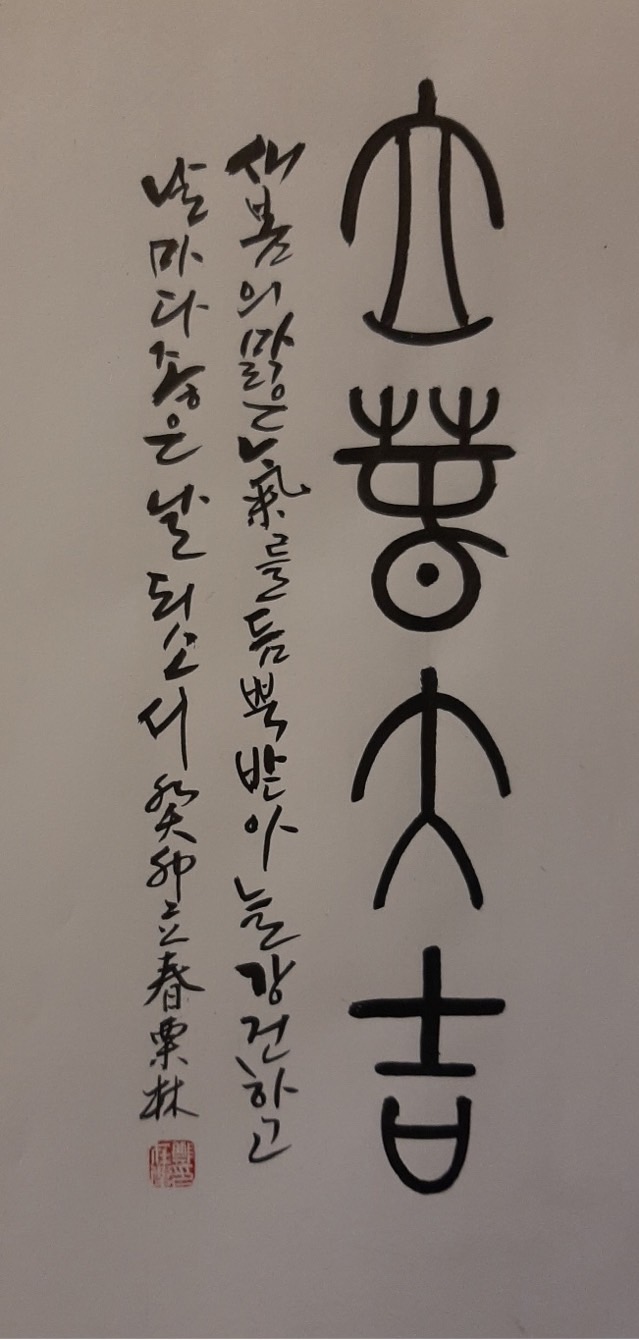 立春大吉
새봄의 맑은 氣를 듬뿍 받아 늘 강건하고
날마다 좋은 날 되소서 癸卯立春 栗林